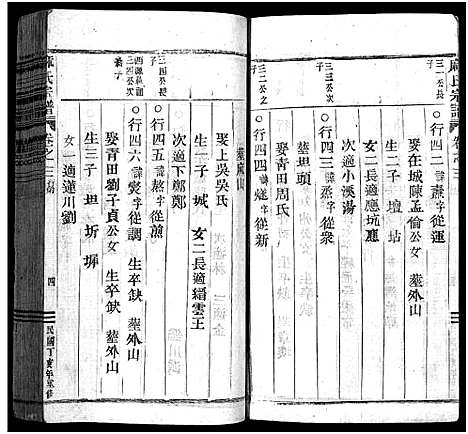 麻氏宗譜 卷之三
三一公長子
行四二 諱 字從運
娶在城陳孟倫公女 塟外山
生二子 壇 坫
女二長適應坑應
次適小溪湯
行四三 諱 字從衆
塟坦頭
三二公之子
行四四 諱 字從新
娶青田周氏
塟麻山
娶上吳吳氏
生子 城 女二長適縉雲王
次適下鄭鄭
三四公長子
行四五 諱 字從薰
三四公次子
行四六 諱 字從調 生卒缺 塟外山
娶青田劉子貞公女 生卒缺 塟外山
生三子 坦 圻 墀
女一適蓮川劉
麻氏宗譜 卷之三
四
民國丁亥年重修